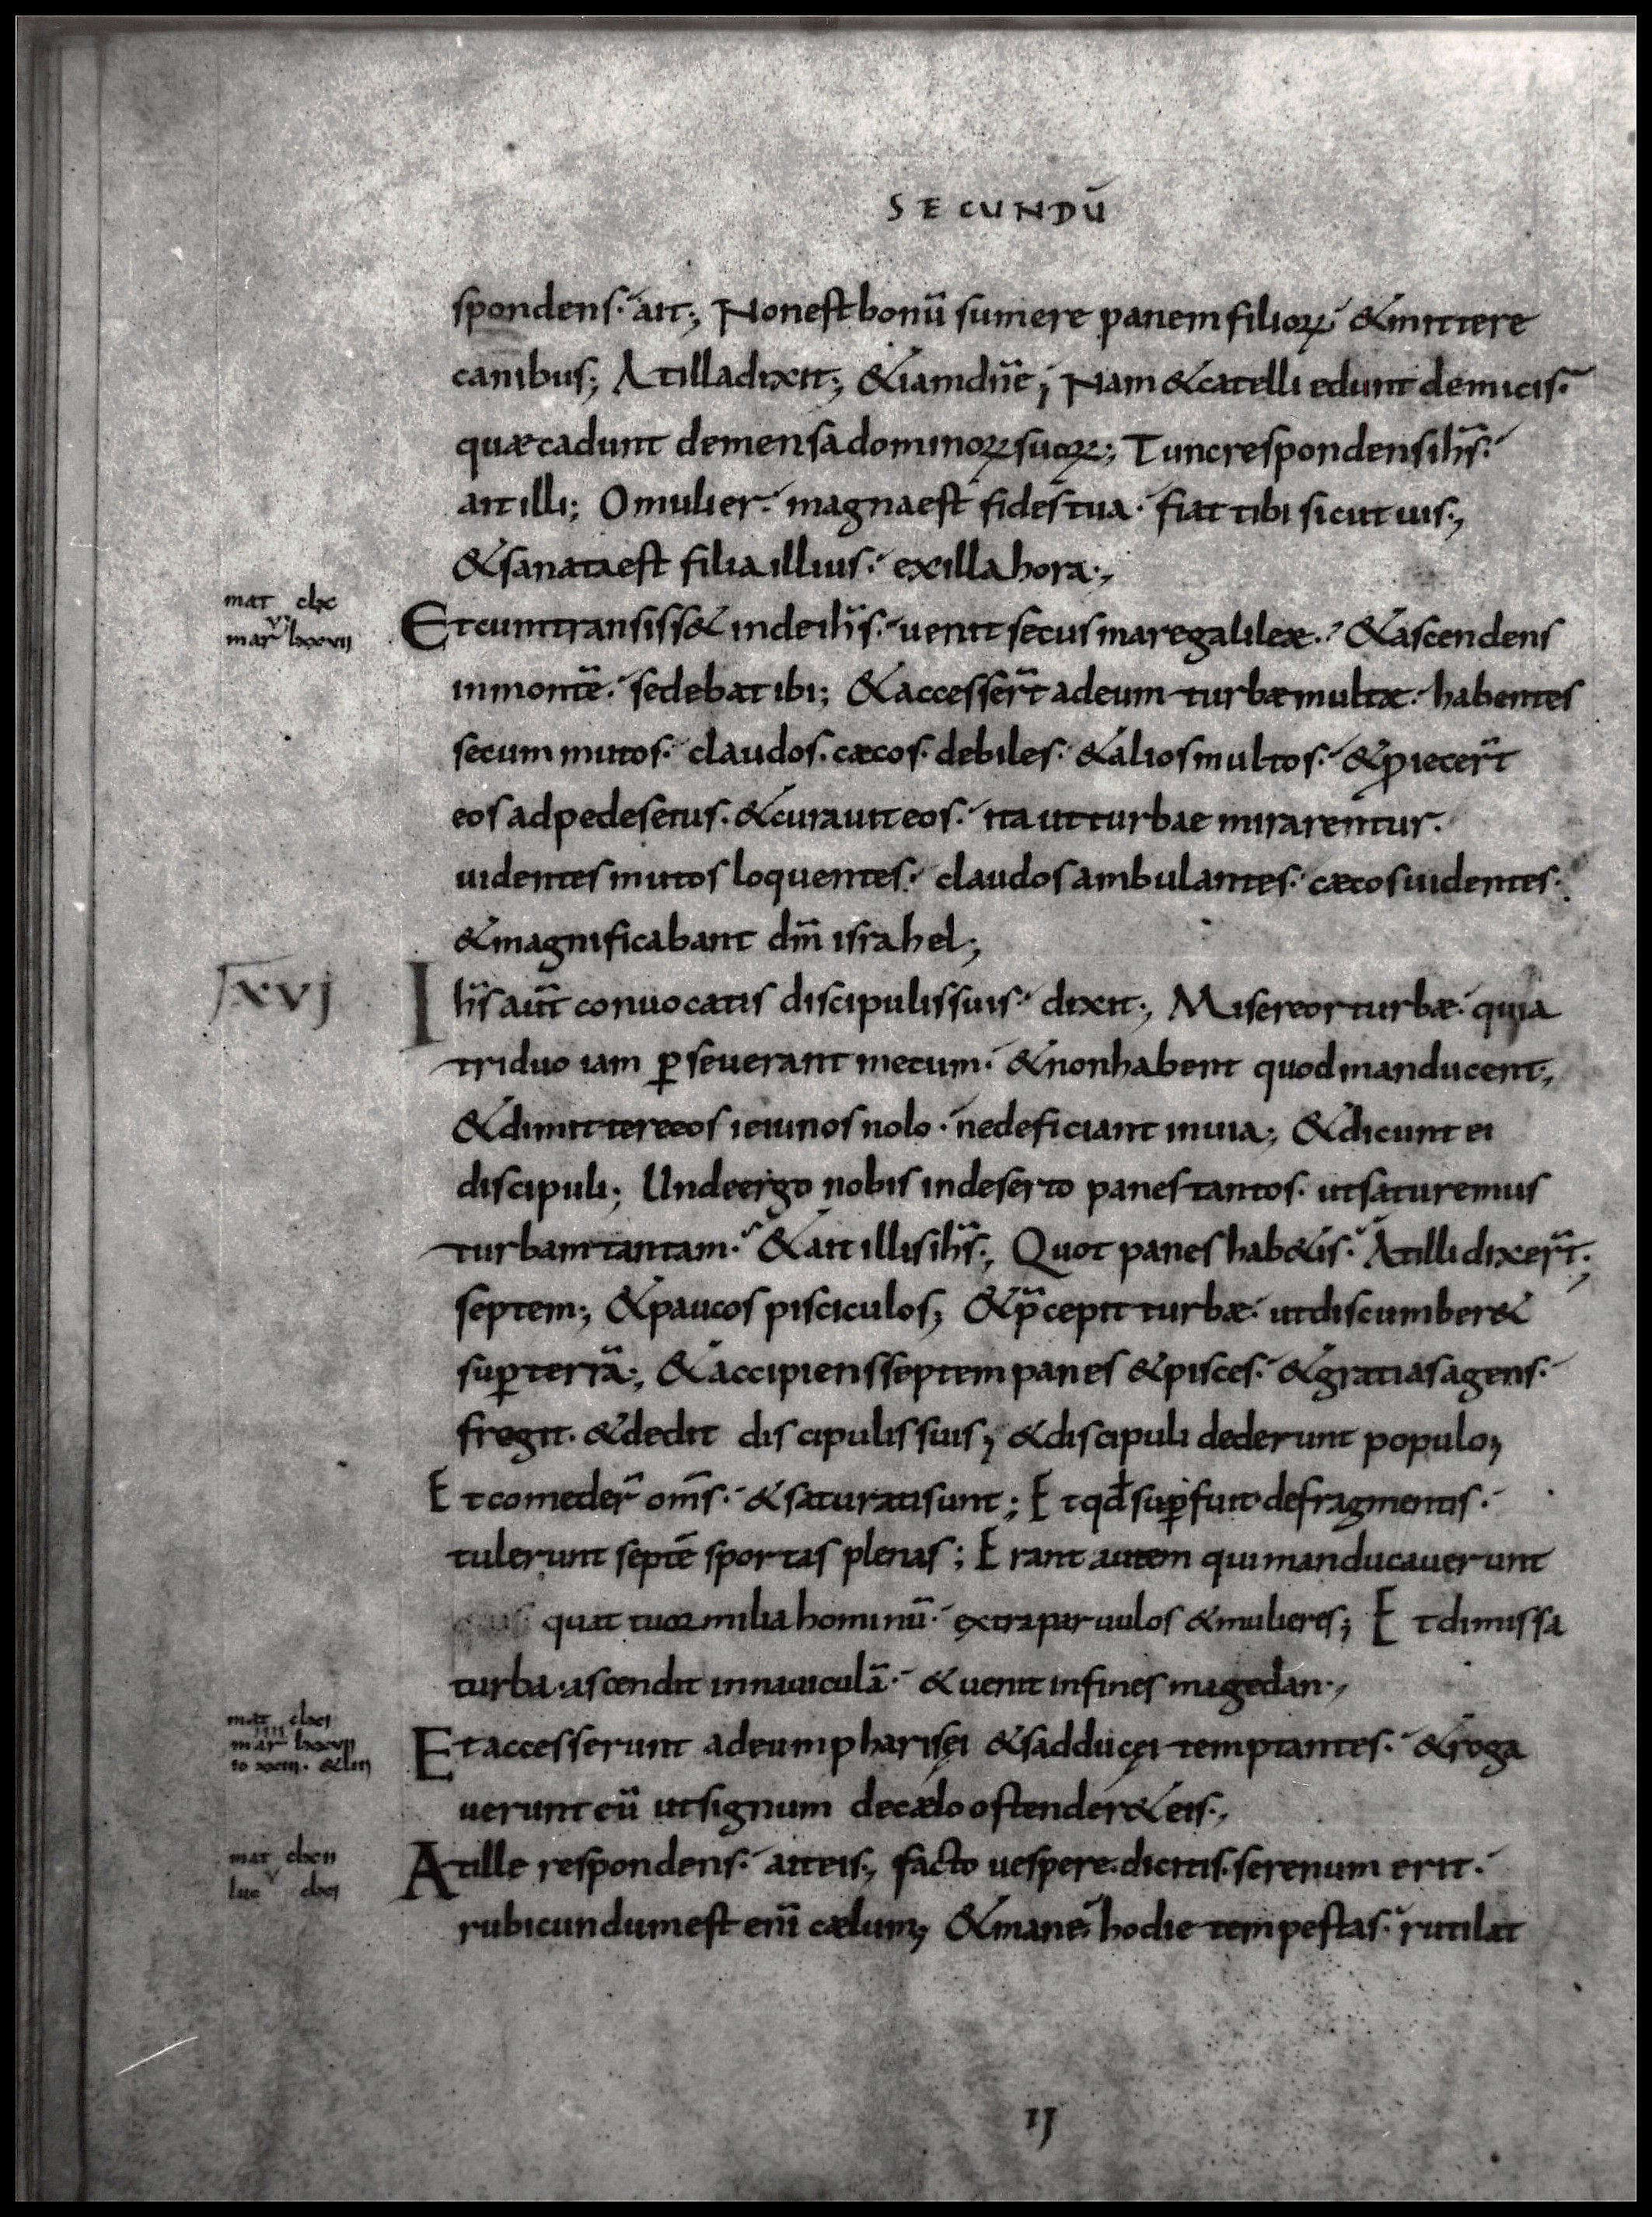 SECUNDŪ
spondens. ait; Non est bonū sumere panem filioꝝ & mittere
canibus; At illa dixit; & iam dn̄e; Nam & catelli edunt de micis.
quæ cadunt de mensa dominoꝝ suoꝝ; Tunc respondens ih̄s.
ait illi; O mulier. magna est fides tua. fiat tibi sicut uis;
& sanata est filia illius. ex illa hora;
mat clx
vi
mar lxxvii
Et cum transiss& inde ih̄s. uenit secus mare galileæ. & ascendens
in montē. sedebat ibi; & accesser̄t ad eum turbæ multæ. habentes
secum mutos. claudos. cæcos. debiles. & alios multos. & ꝓiecer̄t
eos ad pedes eius. & curauit eos. ita ut turbae mirarentur.
uidentes mutos loquentes. claudos ambulantes. cæcos uidentes.
& magnificabant dm̄ israhel;
xvj
Ih̄s aūt conuocatis discipulis suis. dixit; Misereor turbæ. quia
triduo iam ꝑseuerant mecum. & non habent quod manducent;
& dimittere eos ieiunos nolo. ne deficiant in uia; & dicunt ei
discipuli; Unde ergo nobis in deserto panes tantos. ut saturemus
turbam tantam. & ait illis ih̄s; Quot panes hab&is. At illi dixer̄t;
septem; & paucos pisciculos; & p̄cepit turbæ. ut discumber&
suꝑ terrā; & accipiens septem panes & pisces. & gratias agens.
fregit. & dedit discipulis suis; & discipuli dederunt populo;
Et comeder̄ om̄s. & saturati sunt; Et qd̄ suꝑfuit de fragmentis.
tulerunt septē sportas plenas; Erant autem qui manducauerunt
quattuoꝝ milia hominū. extra paruulos & mulieres; Et dimissa
turba. ascendit in nauiculā. & uenit in fines magedan;
mat clxi
iiii
mar lxxvii
Et accesserunt ad eum pharisęi & sadducęi temptantes. & roga
uerunt eū ut signum de cælo ostender& eis;
mat clxii
v
luc clxi
At ille respondens. ait eis; facto uespere. dicitis. serenum erit.
rubicundum est enī cælum; & mane hodie tempestas. rutilat
ij